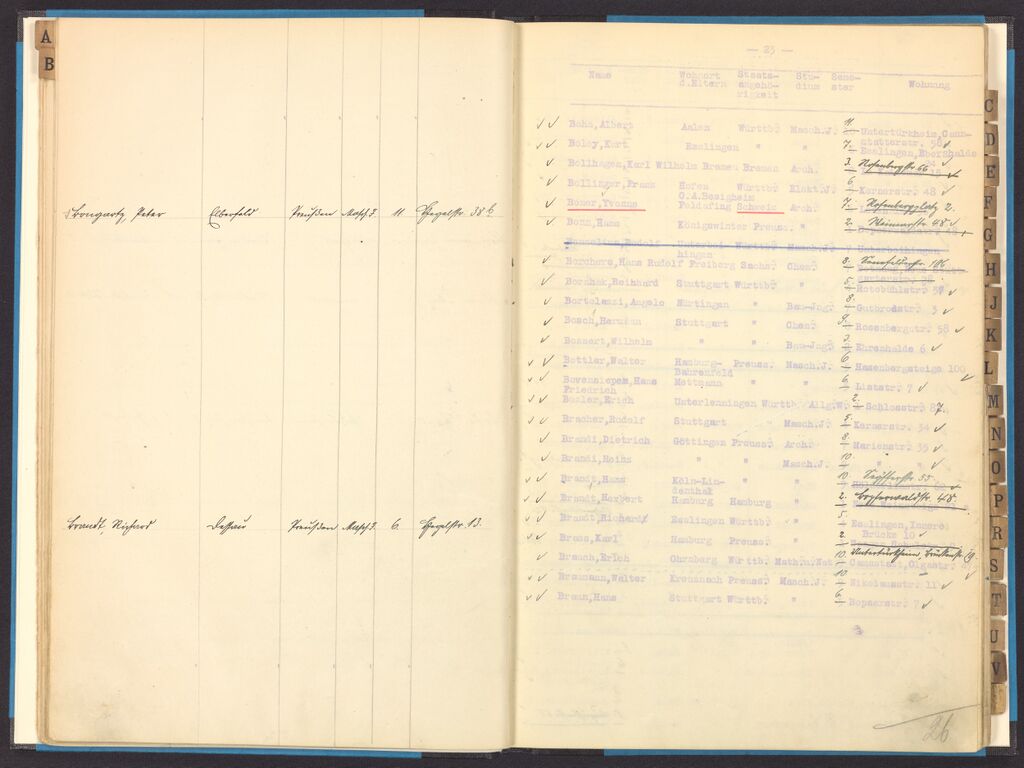 A
B
Bongartz Peter Elberfeld Preußen Masch.J. 11 Hegelstr. 38b
Brandt, Richard Dessau Preußen Masch.J. 6. Hegelstr. 13.
— 23 —
Name Wohnort d.Eltern Staats-angehö-rigkeit Stu-dium Seme-ster Wohnung
Bohn,Albert Aalen Württb. Masch.J. 11 Untertürkheim,Cann-
statterstr. 58
Boley,Kurt Esslingen " " 7. Esslingen,Ebershalde
Bollhagen,Karl Wilhelm Bremen Bremen Arch. 3. Rosenbergstr. 66
Bollinger,Franz Hofen Württb. Elekt.J. 6 Kernerstr. 48
O.A.Besigheim
Bomer,Yvonne Feldafing Schweiz Arch. 7. Rosenbergplatz 2.
Bonn,Hans Königswinter Preuss. " 2. Weimarstr. 48
Rudolf Württb. Masch.J.
hingen
Borchers,Hans Rudolf Freiberg Sachs. Chem. 8. 106
Bornhak,Reinhard Stuttgart Württb. " 5. Rotebühlstr. 57
Bortolazzi,Angelo Nürtingen " Bau-Jng. 8. Gutbrodstr. 3
Bosch,Hermann Stuttgart " Chem. 9. Rosenbergstr. 58
Bossert,Wilhelm " " Bau-Jng. 3. Ehrenhalde 6
Bottler,Walter Hamburg- Preuss. Masch.J. 6 Hasenbergsteige 100
Bahrenfeld
Bovensiepen,Hans Mettmann " " 6. Liststr. 7
Friedrich
Boxler,Erich Unterlenningen Württb. Allg.W. 2. Schlosstr. 87.
Bracher,Rudolf Stuttgart " Masch.J. 5. Kernerstr. 34
Brandi,Dietrich Göttingen Preuss. Arch. 8. Marienstr. 35
Brandi,Heinz " " Masch.J. 10 " "
Brandt,Hans Köln-Lin- " " 10. 55
denthal
Brandt,Herbert Hamburg Hamburg " 2. Bopserwaldstr. 48
Brandt,Richard Esslingen Württb. " 5. Esslingen,Innere
Brücke 10
Brass,Karl Hamburg Preuss. " 2.
Untertürkheim, Brückenstr. 19.
Brauch,Erich Ohrnberg Württb. Math.u.Nat. 10. Cannstatt,Olgastr.
Braumann,Walter Kreuznach Preuss. Masch.J. 10 Nikolausstr. 11
Braun,Hans Stuttgart Württb. " 6. Bopserstr. 7
26
C
D
E
F
G
H
J
K
L
M
N
O
P
R
S
T
U
V